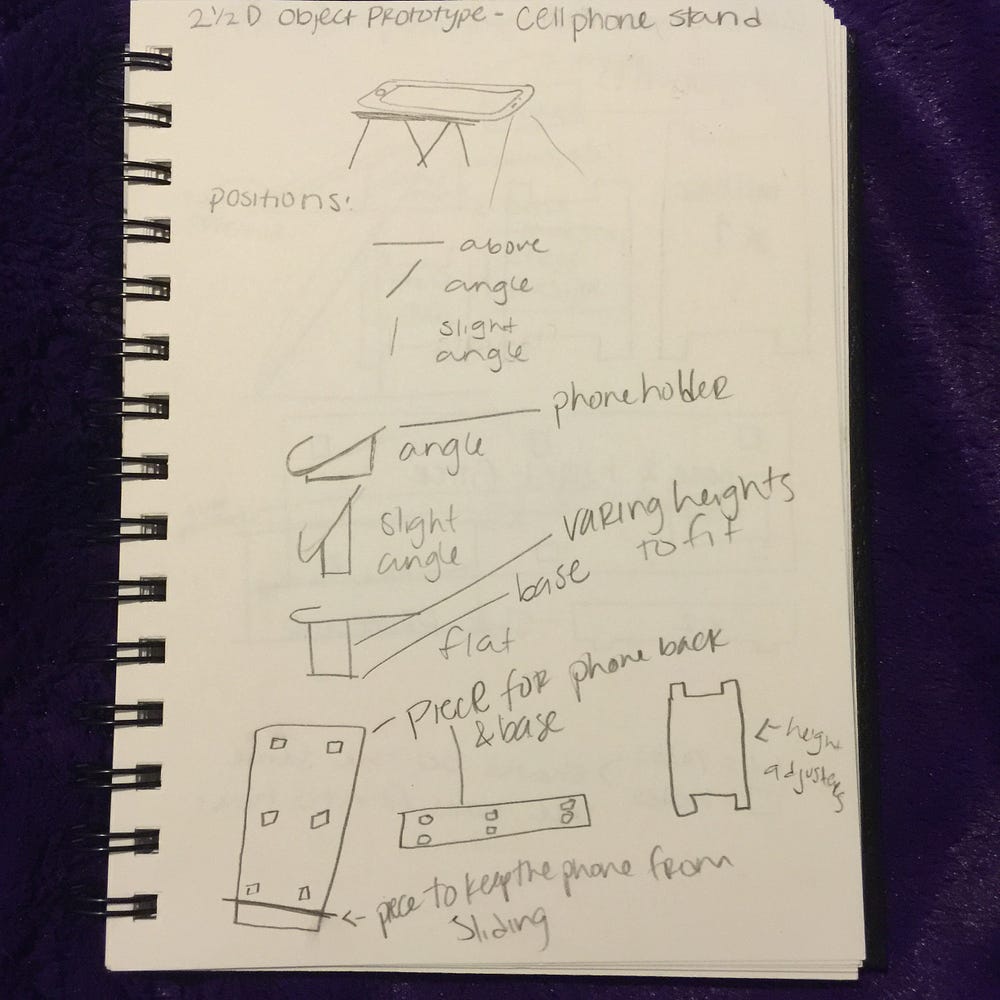 2½D Object Prototype - Cellphone stand
positions:
above
angle
slight
angle
phone holder
angle
slight
angle
varing heights
to fit
base
flat
piece for phone back
& base
<- height
adjusters
<- piece to keep the phone from
sliding